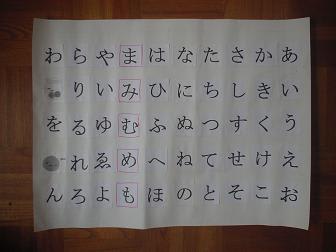 あいうえお
かきくけこ
さしすせそ
たちつてと
なにぬねの
はひふへほ
まみむめも
やいゆゑよ
らりるれろ
わをん